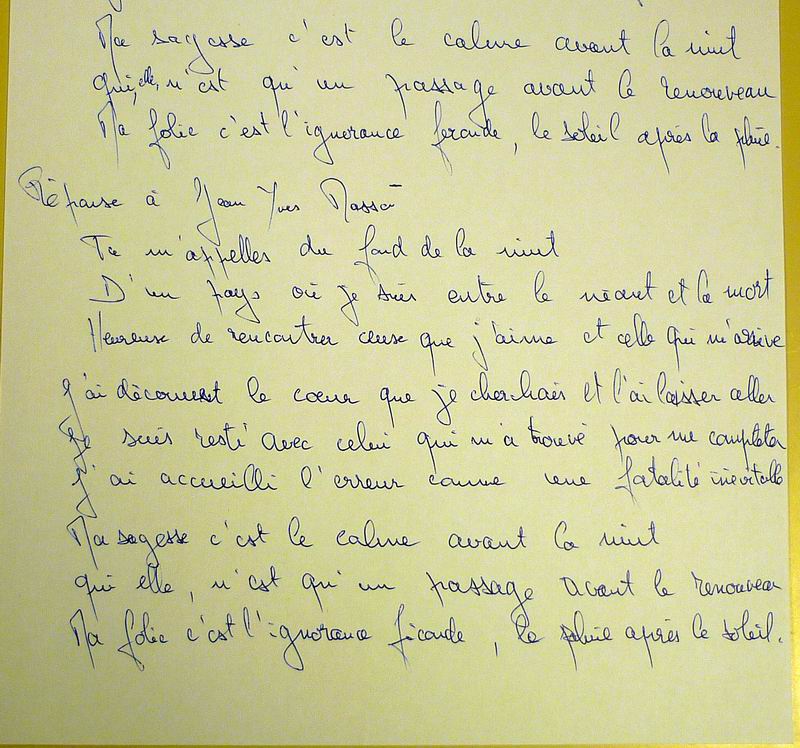 Ma sagesse c'est le calme avant la nuit
qui, elle, n'est qu'un passage avant le renouveau
Ma folie c'est l'ignorance feconde, le soleil après la pluie.
Réponse à Jean Yves Masson
Tu m'appelles du fond de la nuit
D'un pays où je suis entre le néant et la mort
Heureuse de rencontrer ceux que j'aime et celle qui m'arrive
J'ai découvert le coeur que je cherchais et l'ai laisser aller
Je suis resté avec celui qui m'a trouvé pour me completer
J'ai accueilli l'erreur comme une fatalité inévitable
Ma sagesse c'est le calme avant la nuit
qui elle, n'est qu'un passage avant le renouveau
Ma folie c'est l'ignorance féconde, la pluie après le soleil.